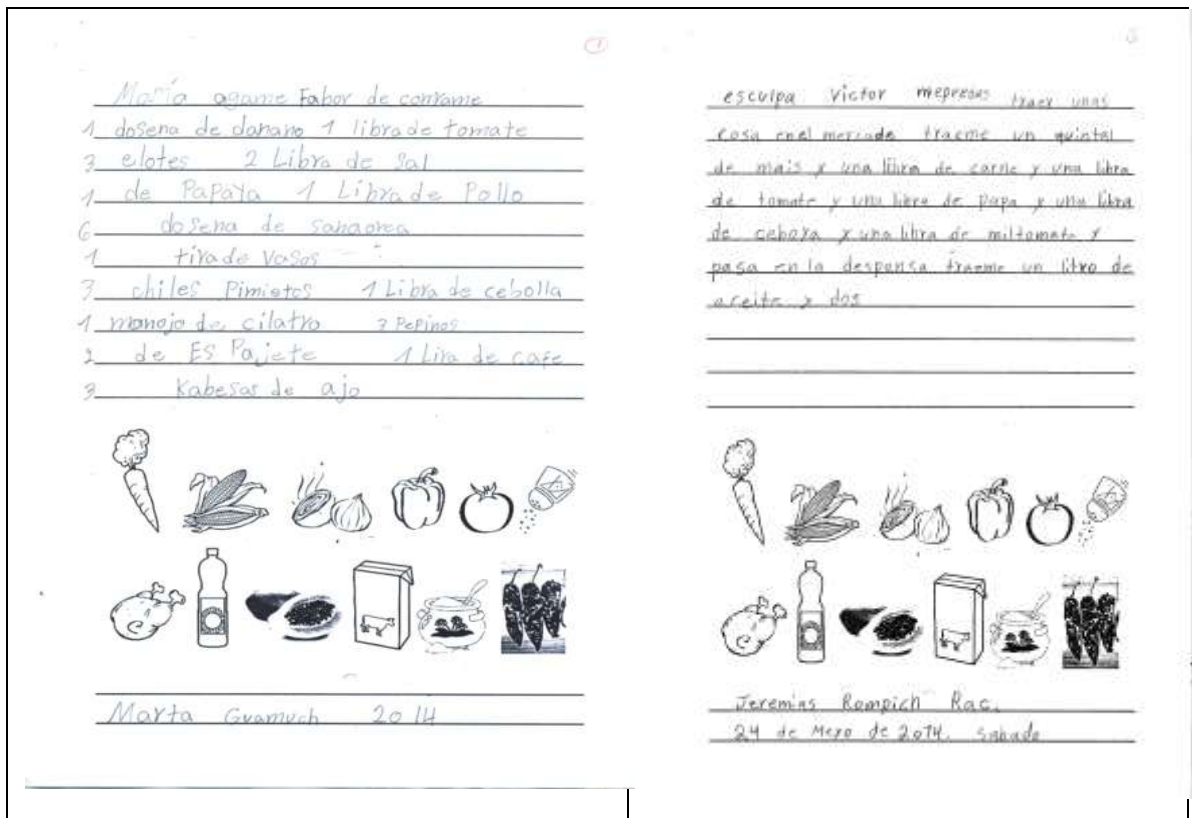 María agame Fabor de comrame
1 dosena de danano 1 libra de tomate
3 elotes 2 Libra de Sal
1 de PaPaya 1 Libra de Pollo
6 dosena de sanaorea
1 tira de Vasos
3 chiles Pimietos 1 Libra de cebolla
1 manojo de cilatro 3 PePinos
2 de ES Pajete 1 Lira de cafe
3 Kabesas de ajo
Marta Guamuch 2014
esculpa Victor mepredas traer unas
cosa en el mercado traeme un quintal
de mais y una libra de carne y una libra
de tomate y una libra de papa y una libra
de ceboya y una libra de miltomate y
pasa en la despensa traeme un litro de
aceite y dos
Jeremias Rompich Rac.
24 de Mayo de 2014. sabado